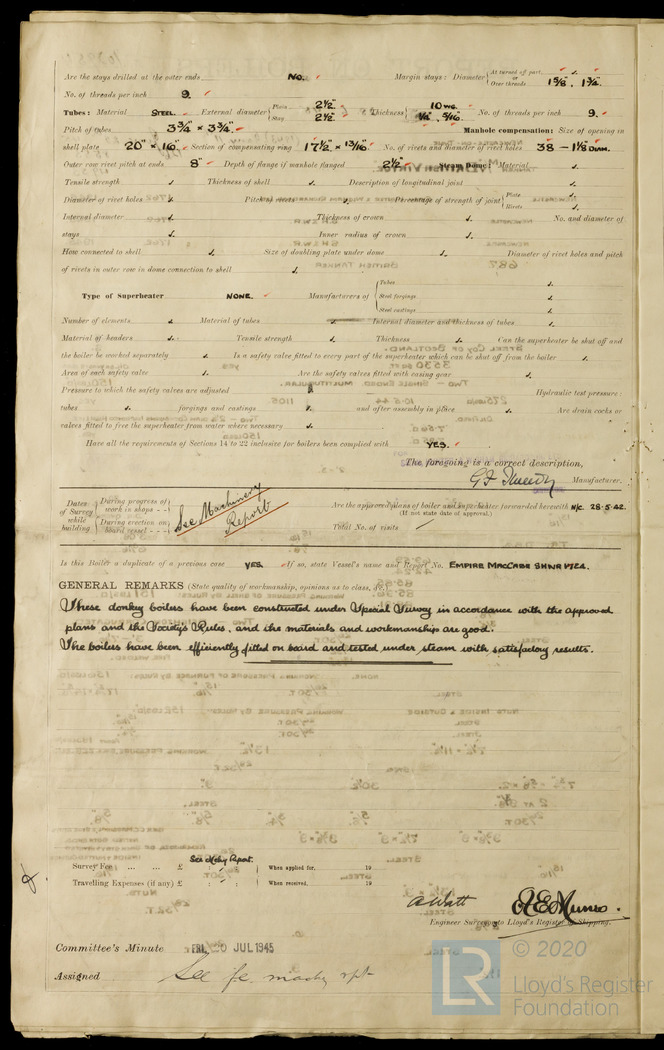 Are the stays drilled at the outer ends No. Margin stays: Diameter { At turned off part, or Over threads 1 5/8", 1 3/4".
No. of threads per inch 9.
Tubes: Material STEEL. External diameter { Plain 2 1/2" Stay 2 1/2" Thickness { 10 WG. 1/4", 5/16" No. of threads per inch 9.
Pitch of tubes 3 3/4" × 3 3/4". Manhole compensation: Size of opening in
shell plate 20" × 16". Section of compensating ring 17 1/2" × 13/16" No. of rivets and diameter of rivet holes 38 - 1 1/8 DIAM.
Outer row rivet pitch at ends 8" Depth of flange if manhole flanged 2 1/2" Steam Dome: Material
Tensile strength Thickness of shell Description of longitudinal joint
Diameter of rivet holes Pitch of rivets Percentage of strength of joint { Plate Rivets
Internal diameter Thickness of crown No. and diameter of
stays Inner radius of crown
How connected to shell Size of doubling plate under dome Diameter of rivet holes and pitch
of rivets in outer row in dome connection to shell
Type of Superheater NONE. Manufacturers of { Tubes Steel forgings Steel castings
Number of elements Material of tubes Internal diameter and thickness of tubes
Material of headers Tensile strength Thickness Can the superheater be shut off and
the boiler be worked separately Is a safety valve fitted to every part of the superheater which can be shut off from the boiler
Area of each safety valve Are the safety valves fitted with easing gear
Pressure to which the safety valves are adjusted Hydraulic test pressure:
tubes forgings and castings and after assembly in place Are drain cocks or
valves fitted to free the superheater from water where necessary
Have all the requirements of Sections 14 to 22 inclusive for boilers been complied with YES.
The foregoing is a correct description,
Manufacturer.
Dates of Survey while building { During progress of work in shops - - During erection on board vessel - - - See Machinery Report
Are the approved plans of boiler and superheater forwarded herewith N/C. 28.5.42.
(If not state date of approval.)
Total No. of visits /
Is this Boiler a duplicate of a previous case YES. If so, state Vessel's name and Report No. EMPIRE MACCABE SHWR 1762.
GENERAL REMARKS (State quality of workmanship, opinions as to class, &c.)
These donkey boilers have been constructed under Special Survey in accordance with the approved
plans and the Society's Rules, and the materials and workmanship are good.
The boilers have been efficiently fitted on board and tested under steam with satisfactory results.
See Mchy Report.
Survey Fee ... ... ... £ : : When applied for, 19
Travelling Expenses (if any) £ : : When received, 19
A Watt
Engineer Surveyor to Lloyd's Register of Shipping.
Committee's Minute FRI. 20 JUL 1945
Assigned See fe machy rpt
LR © 2020
Lloyd's Register
Foundation